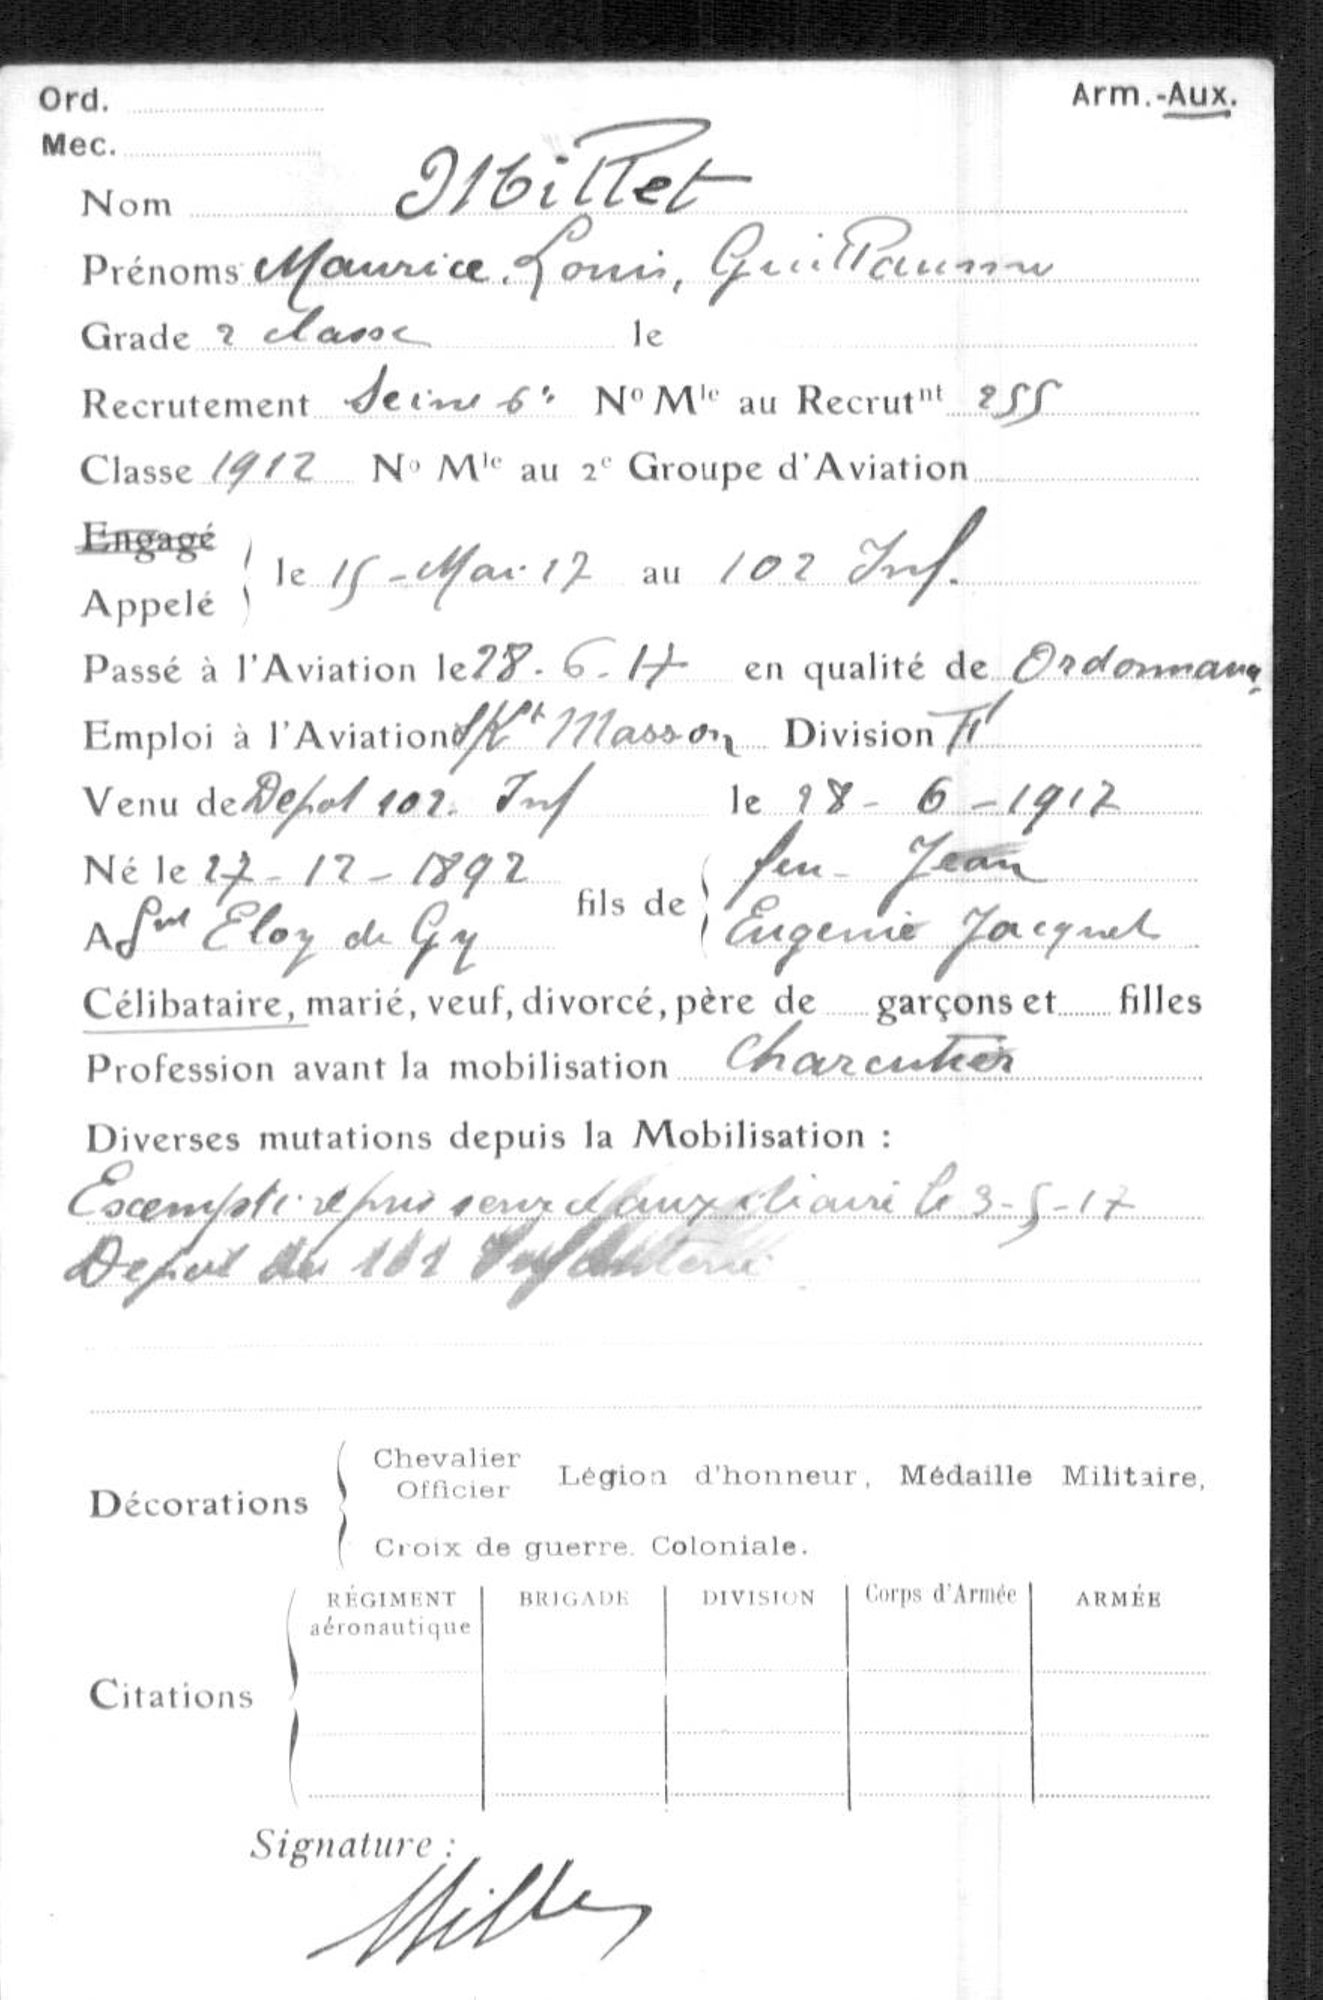 Ord.
Arm.-Aux.
Mec.
Nom Millet
Prénoms Maurice, Louis, Guillaume
Grade 2 classe le
Recrutement Seine 6e No Mle au Recrutnt 255
Classe 1912 No Mle au 2e Groupe d'Aviation
Engagé
Appelé } le 15-Mai 17 au 102 Inf.
Passé à l'Aviation le 28.6.17 en qualité de Ordonnance
Emploi à l'Aviation Masson Division
Venu de Depot 102. Inf le 28-6-1917
Né le 27-12-1892 fils de { feu Jean
A St Eloy de Gy Eugenie Jacquet
Célibataire, marié, veuf, divorcé, père de garçons et filles
Profession avant la mobilisation Charcutier
Diverses mutations depuis la Mobilisation :
Exempté repris auxiliaire le 3-5-17
Depot du Infanterie
Chevalier
Officier Légion d'honneur, Médaille Militaire,
Décorations {
Croix de guerre. Coloniale.
RÉGIMENT aéronautique BRIGADE DIVISION Corps d'Armée ARMÉE
Citations
Signature :
Millet